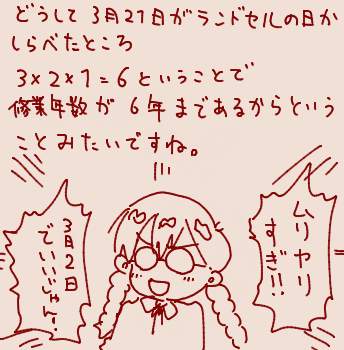 どうして3月21日がランドセルの日か
しらべたところ
3×2×1=6ということで
修業年数が6年まであるからという
ことみたいですね。
ムリヤリ
すぎ!!
3月2日
でいいじゃん!